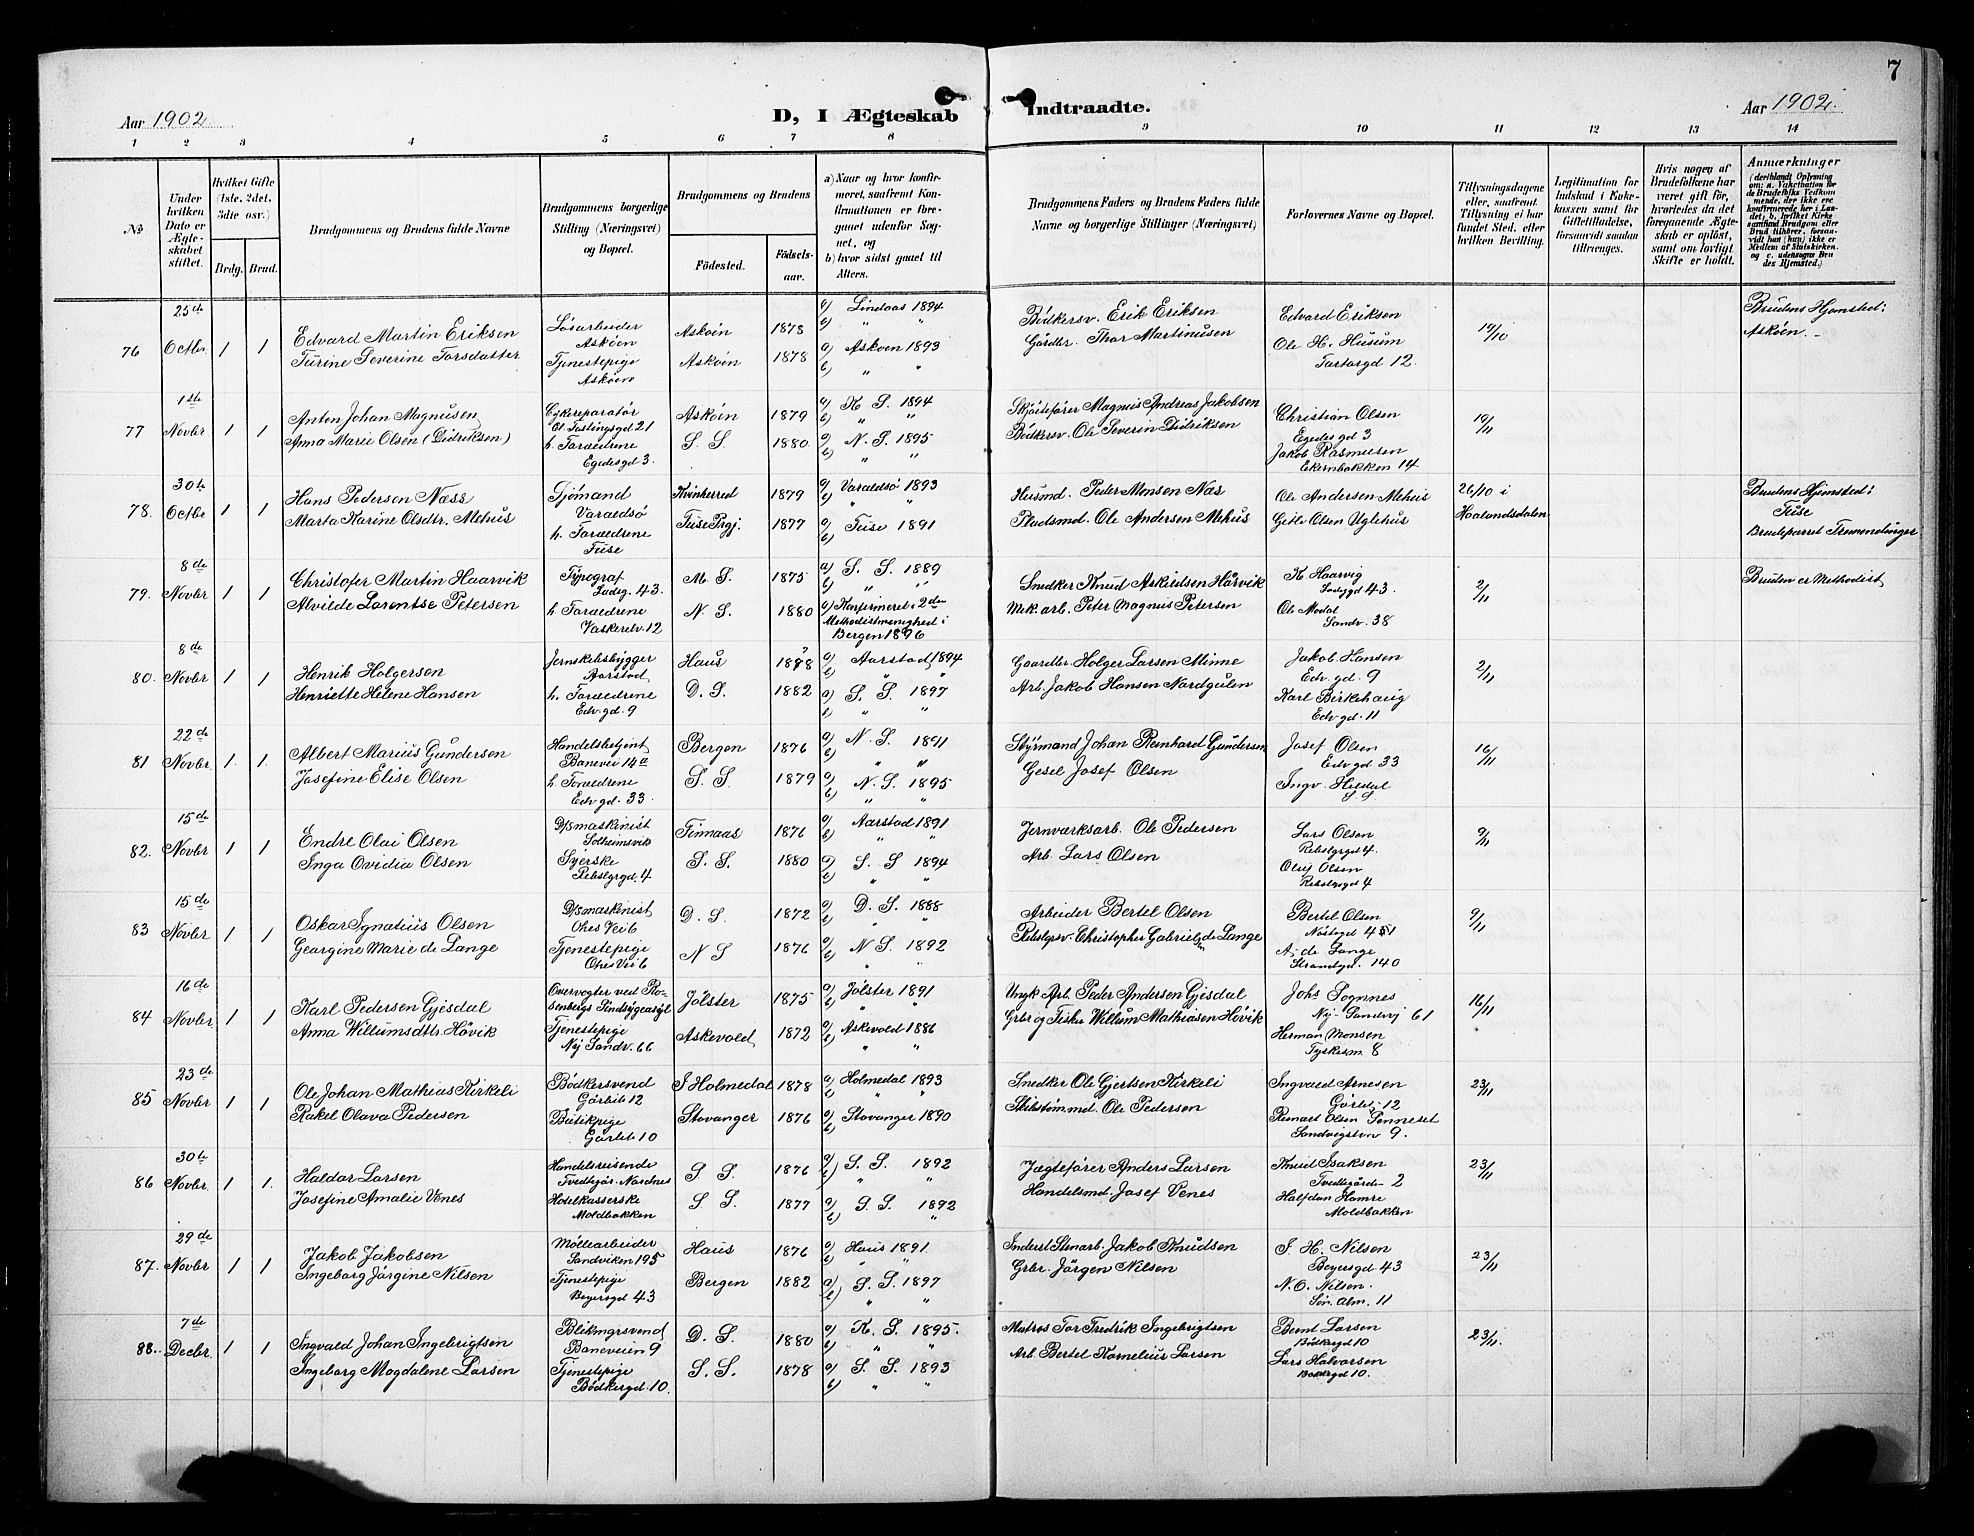 7
Aar 1902.
D, I Ægteskab Indtraadte.
Aar 1902.
1 2 3 4 5 6 7 8 9 10 11 12 13 14
№
Under hvilken Dato er Ægteskabet stiftet.
Hvilket Gifte (1ste, 2det, 3die osv.)
Brdg. Brud.
Brudgommens og Brudens fulde Navne
Brudgommens borgerlige Stilling (Næringsvei) og Bopæl.
Brudgommens og Brudens
Födested. Födselsaar.
a) Naar og hvor konfirmeret, saafremt Konfirmationen er foregaaet udenfor Sognet, og
b) hvor sidst gaaet til Alters.
Brudgommens Faders og Brudens Faders fulde Navne og borgerlige Stillinger (Næringsvei)
Forlovernes Navne og Bopæl.
Tillysningsdagene eller, saafremt Tillysning ei har fundet Sted, efter hvilken Bevilling.
Legitimation for Indskud i Enkekassen samt for Giftetilladelse, forsaavidt saadan tiltrænges.
Hvis nogen af Brudefolkene har været gift för, hvorledes da det foregaaende Ægteskab er oplöst, samt om lovligt Skifte er holdt.
Anmærkninger
76 25de Octbr. 1 1
Edvard Martin Eriksen
Turine Severine Torsdatter
Løsarbeider
Askøen
Tjenestepige
Askøen
Askøin 1878
Askøin 1878
a) Lindaas 1894
b) " "
a) Askøen 1893
b) " "
Bödkersv. Erik Eriksen
Gårdbr. Thor Martinusen
Edvard Eriksen
Ole H. Husum
Tartargd 12.
19/10
Brudens Hjemsted:
Askøen. -
77 1ste Novbr 1 1
Anton Johan Magnusen
Anna Marie Olsen (Didriksen)
Cykereparatør
h. Forældrene
Egedesgd 3.
Askøin 1879
S. S. 1880
a) K. S. 1894
b) " "
a) N. S. 1895
b) " "
Skjøitefører Magnus Andreas Jakobsen
Bödkersv. Ole Severin Didriksen
Christian Olsen
Egedes gd 3
Jakob Rasmussen
Ekernbakken 14
78. 30te Octbr 1 1
Hans Pederson Næss
Marta Karine Olsdtr. Mehus
Sjömand
Varaldsö
h. Forældrene
Fuse
Kvinherred 1879
Fuse Prgj. 1877
a) Varaldsö 1893
b) "
a) Fuse 1891
b)
Husmd. Peder Monsen Næs
Pladsmd. Ole Andersen Mehus
Ole Andersen Mehus
Gitle Olsen Uglehus
26/10 i
Haalandsdalen
Brudens Hjemsted:
Fuse
Brudeparret Fremmedlinger
79. 8de Novbr 1 1
Christofer Martin Haarvik
Alvilde Lorentse Petersen
Typograf
Lodeg. 43.
h. Forældrene
Vaskerelv. 12
M. S. 1875
N. S. 1880
a) S. S. 1889
b) "
a) Konfirmeret i 2den
Methodistmenighed i
Bergen 1896
Snedker Knud Askildsen Hårvik
Mek. arb. Peter Magnus Petersen
K Haarvig
Lodeggd 43.
Ole Modal
Sandv. 38
2/11
Bruden er Methodist
80. 8de Novbr 1 1
Henrik Holgersen
Henriette Helene Hansen
Jernskibsbygger
Aarstad
h. Forældrene
Edv. gd. 9
Haus 1878
D. S. 1882
a) Aarstad 1894
b) " "
a) S. S. 1897
b) " "
Gaardbr. Holger Larsen Minne
Arb. Jakob Hansen Nordgulen
Jakob Hansen
Edv gd. 9
Karl Birkehaug
Edv gd. 11
2/11
81 22de Novbr. 1. 1.
Albert Marius Gundersen
Josefine Elise Olsen
Handelsbetjent
Banevei 14a
h. Forældrene
Edv gd. 33.
Bergen 1876
S. S. 1879
a) N. S. 1891
b) " "
a) N. S. 1895
b) " "
Styrmand Johan Reinhard Gundersen
Gesel Josef Olsen
Josef Olsen
Edv gd 33
Ingv. Hisdal
16/11
82. 15de Novbr 1 1
Endre Olai Olsen
Inga Ovidia Olsen
D/Smaskinist
Solheimsvik
Syerske
Rebslgrgd. 4
Finnaas 1876
S. S. 1880
a) Aarstad 1891
b) " "
a) S. S 1894
b) " "
Jernværksarb. Ole Pedersen
Arb. Lars Olsen
Lars Olsen
Rebslgrgd 4.
Oluf Olsen
Rebslgrgd 4
9/11
83 15de Novbr 1 1
Oskar Ignatius Olsen
Georgine Marie de Lange
D/Smaskinist
Ohrs Vei 6
Tjenestepige
Ohrs Vei 6
D. S. 1872
N S 1876
a) D. S. 1888
b) "
a) N S. 1892
b) "
Arbeider Bertel Olsen
Rebslgrsv. Christopher Gabrielsen de Lange
Bertel Olsen
A. de Lange
Strandgd. 140
9/11
84 16de Novbr 1 1
Karl Pedersen Gjesdal
Anna Willumsdtr. Hövik
Overvogter ved Rosenbergs Sindsygeasyl
Tjenestepige
Ny Sandv. 66
Jölster 1875
Askevold 1872
a) Jölster 1891
b) "
a) Askevold 1886
b) " "
Ungk Arb. Peder Andersen Gjesdal
Grbr og Fisker Willum Mathiasen Hövik
Johs Sognnes
Ny Sandvj 61
Herman Monsen
Tyskesm. 8
16/11
85 23de Novbr 1 1
Ole Johan Mathias Kirkeli
Rakel Olava Pedersen
Bödkersvend
Görbit 12
Butikpige
Görbit. 10
I Holmedal 1878
Stavanger 1876
a) Holmedal 1893
b) " "
a) Stavanger 1890
b)
Snedker Ole Gjertsen Kirkeli
Skibstømmd. Ole Pedersen
Ingvald Arnesen
Görbit. 12
Rasmus Olsen Tenneset
Sandvigstvn 9.
23/11
86 30te Novbr. 1 1.
Haldor Larsen
Josefine Amalie Venes
Handelsreisende
Tvedtegår. Nordnes
Hotelkasserske
Moldbakken
S. S. 1876
S. S. 1877
a) S. S. 1892
b) " "
a) S. S. 1892
b) "
Jægtefører Anders Larsen
Handelsmd. Josef Venes
Knud Isaksen
Tvedtegården 2
Halfdan Hamre
Moldbakken
23/11
87. 29de Novbr 1 1
Jakob Jakobsen
Ingeborg Jörgine Nilsen
Möllearbeider
Sandviken 195
Tjenestepige
Beyersgd 43
Haus 1876
Bergen 1882
a) Haus 1891
b) " "
a) S. S. 1897
b) " "
Inderst Stenarb. Jakob Knudsen
Grbr. Jörgen Nilsen
J. H. Nilsen
Beyersgd 43
N. O. Nilsen.
Søn. Alm. 11
23/11
88. 7de Decbr. 1 1
Ingvald Johan Ingebrigtsen
Ingeborg Magdalene Larsen
Blikmgrsvend
Baneveien 9
Tjenestepige
Bödkergd. 10.
D. S. 1880
S. S. 1878
a) K. S. 1895.
b) " "
a) S. S. 1893
b) " "
Matros Tor Fredrik Ingebrigtsen
Arb. Bertel Kornelius Larsen
Bernt Larsen
Bödkergd 10
Lars Halvorsen
Bödkergd 10.
23/11.